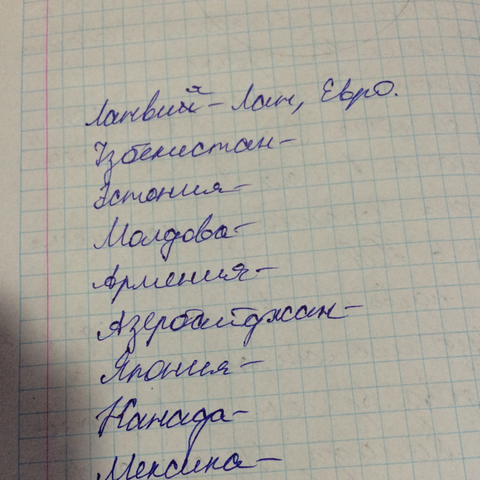 Латвия - Лат, Евро.
Узбекистан -
Эстония -
Молдова -
Армения -
Азербайджан -
Япония -
Канада -
Мексика -